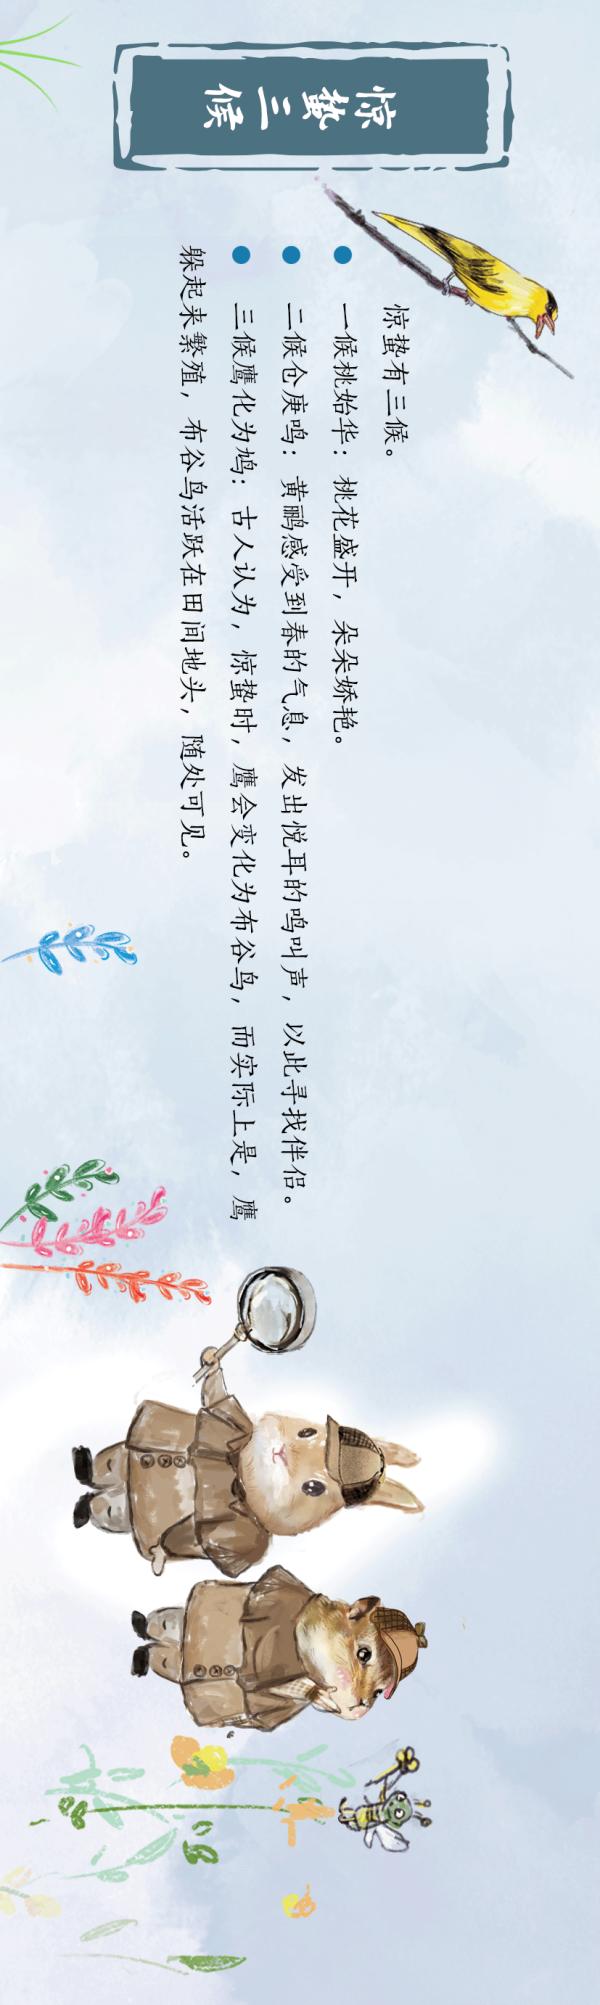 惊蛰三候
惊蛰有三候。
一候桃始华：桃花盛开，朵朵娇艳。
二候仓庚鸣：黄鹂感受到春的气息，发出悦耳的鸣叫声，以此寻找伴侣。
三候鹰化为鸠：古人认为，惊蛰时，鹰会变化为布谷鸟，而实际上是，鹰
躲起来繁殖，布谷鸟活跃在田间地头，随处可见。